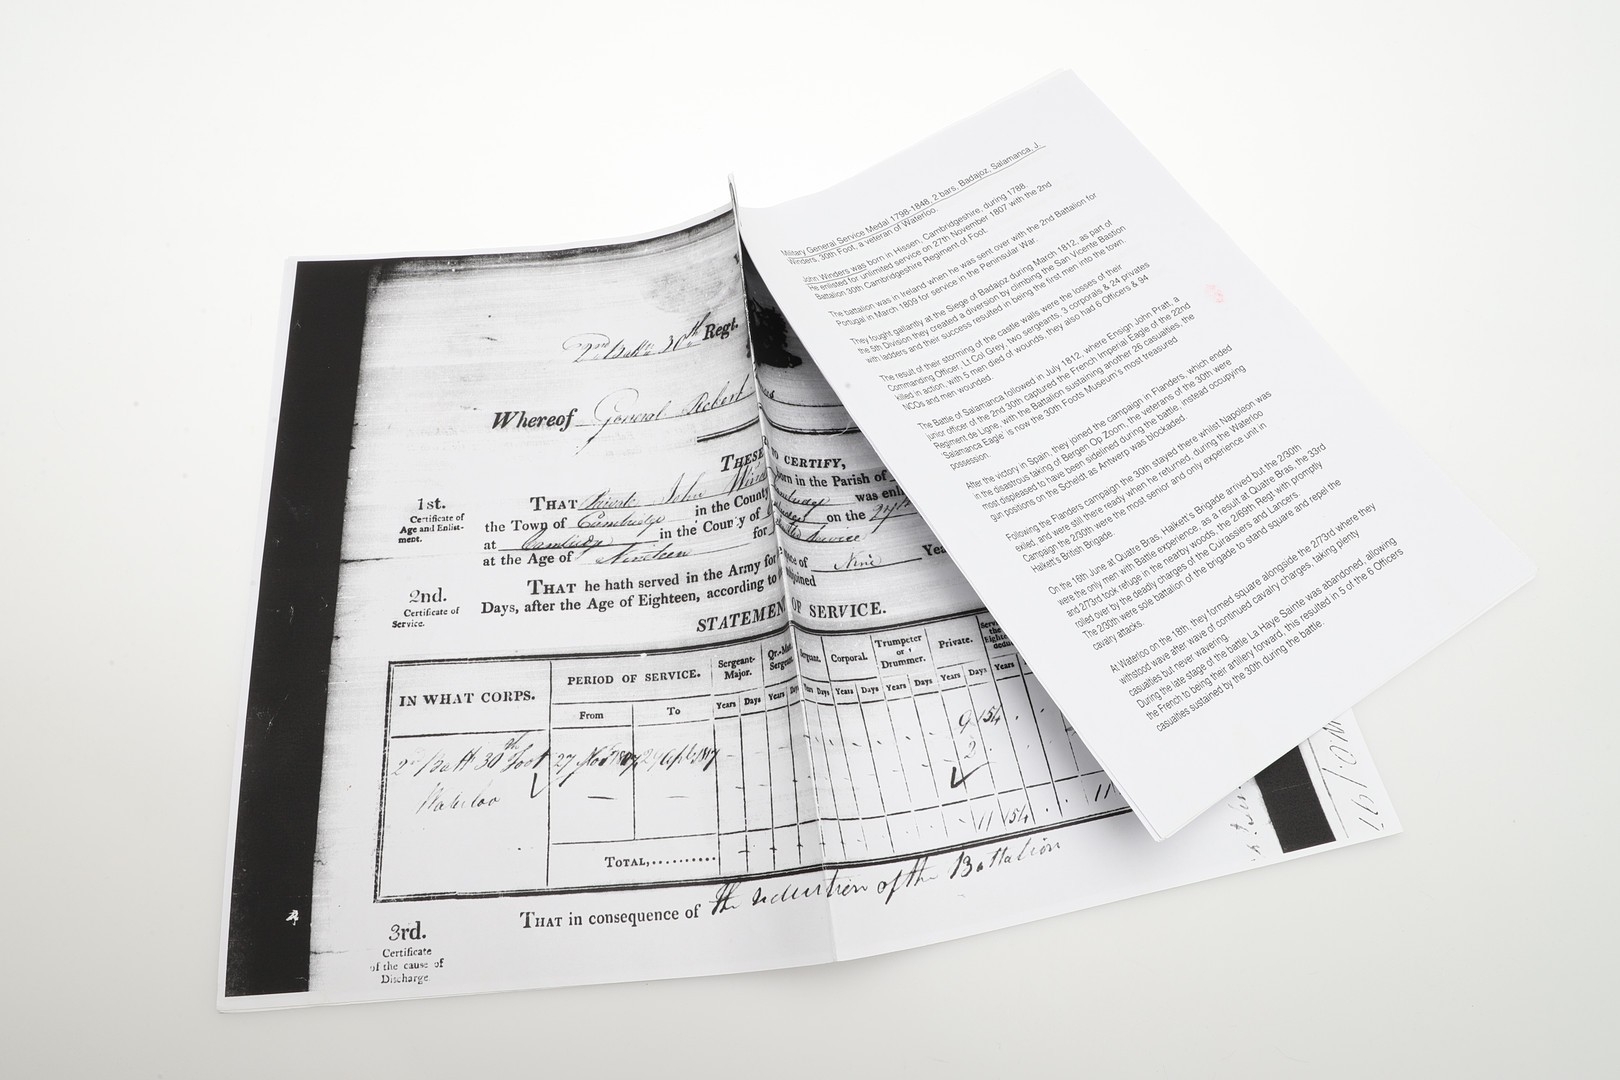 2nd Battn 30th Regt.
Whereof General Robert
THESE TO CERTIFY,
1st.
Certificate of
Age and Enlist-
ment.
THAT Private John born in the Parish of
the Town of Cambridge in the County was
at Cambridge in the County of on the 27th
at the Age of Nineteen for
2nd.
Certificate of
Service.
THAT he hath served in the Army for space of Nine
Days, after the Age of Eighteen, according to
STATEMENT OF SERVICE.
IN WHAT CORPS.
PERIOD OF SERVICE.
From To
Sergeant-
Major.
Sergeant.
Corporal.
Trumpeter
or
Drummer.
Private.
Years Days Years Days Years Days Years Days Years Days Years Days Years
2nd Batt 30th Foot 27 Novr 1807 1817 9 154
Waterloo 2
TOTAL, 11 154 11
3rd.
Certificate
of the cause of
Discharge
THAT in consequence of the reduction of the Battalion
Military General Service Medal 1798-1848, 2 bars, Badajoz, Salamanca, J.
Winders, 30th Foot, a veteran of Waterloo.
John Winders was born in Hissen, Cambridgeshire, during 1788
He enlisted for unlimited service on 27th November 1807 with the 2nd
Battalion 30th Cambridgeshire Regiment of Foot.
The battalion was in Ireland when he was sent over with the 2nd Battalion for
Portugal in March 1809 for service in the Peninsular War.
They fought gallantly at the Siege of Badajoz during March 1812, as part of
the 5th Division they created a diversion by climbing the San Vicente Bastion
with ladders and their success resulted in being the first men into the town.
The result of their storming of the castle walls were the losses of their
Commanding Officer, Lt Col Grey, two sergeants, 3 corporals & 24 privates
killed in action, with 5 men died of wounds, they also had 6 Officers & 94
NCOs and men wounded.
The Battle of Salamanca followed in July 1812, where Ensign John Pratt, a
junior officer of the 2nd 30th captured the French Imperial Eagle of the 22nd
Regiment de Ligne, with the Battalion sustaining another 26 casualties, the
'Salamanca Eagle' is now the 30th Foots Museum's most treasured
possession.
After the victory in Spain, they joined the campaign in Flanders, which ended
in the disastrous taking of Bergen Op Zoom, the veterans of the 30th were
most displeased to have been sidelined during the battle, instead occupying
gun positions on the Scheldt as Antwerp was blockaded.
Following the Flanders campaign the 30th stayed there whilst Napoleon was
exiled, and were still there ready when he returned, during the Waterloo
Campaign the 2/30th were the most senior and only experience unit in
Halkett's British Brigade.
On the 16th June at Quatre Bras, Halkett's Brigade arrived but the 2/30th
were the only men with Battle experience, as a result at Quatre Bras, the 33rd
and 2/73rd took refuge in the nearby woods, the 2/69th Regt with promptly
rolled over by the deadly charges of the Cuirassiers and Lancers.
The 2/30th were sole battalion of the brigade to stand square and repel the
cavalry attacks.
At Waterloo on the 18th, they formed square alongside the 2/73rd where they
withstood wave after wave of continued cavalry charges, taking plenty
casualties but never wavering.
During the late stage of the battle La Haye Sainte was abandoned, allowing
the French to being their artillery forward, this resulted in 5 of the 6 Officers
casualties sustained by the 30th during the battle.